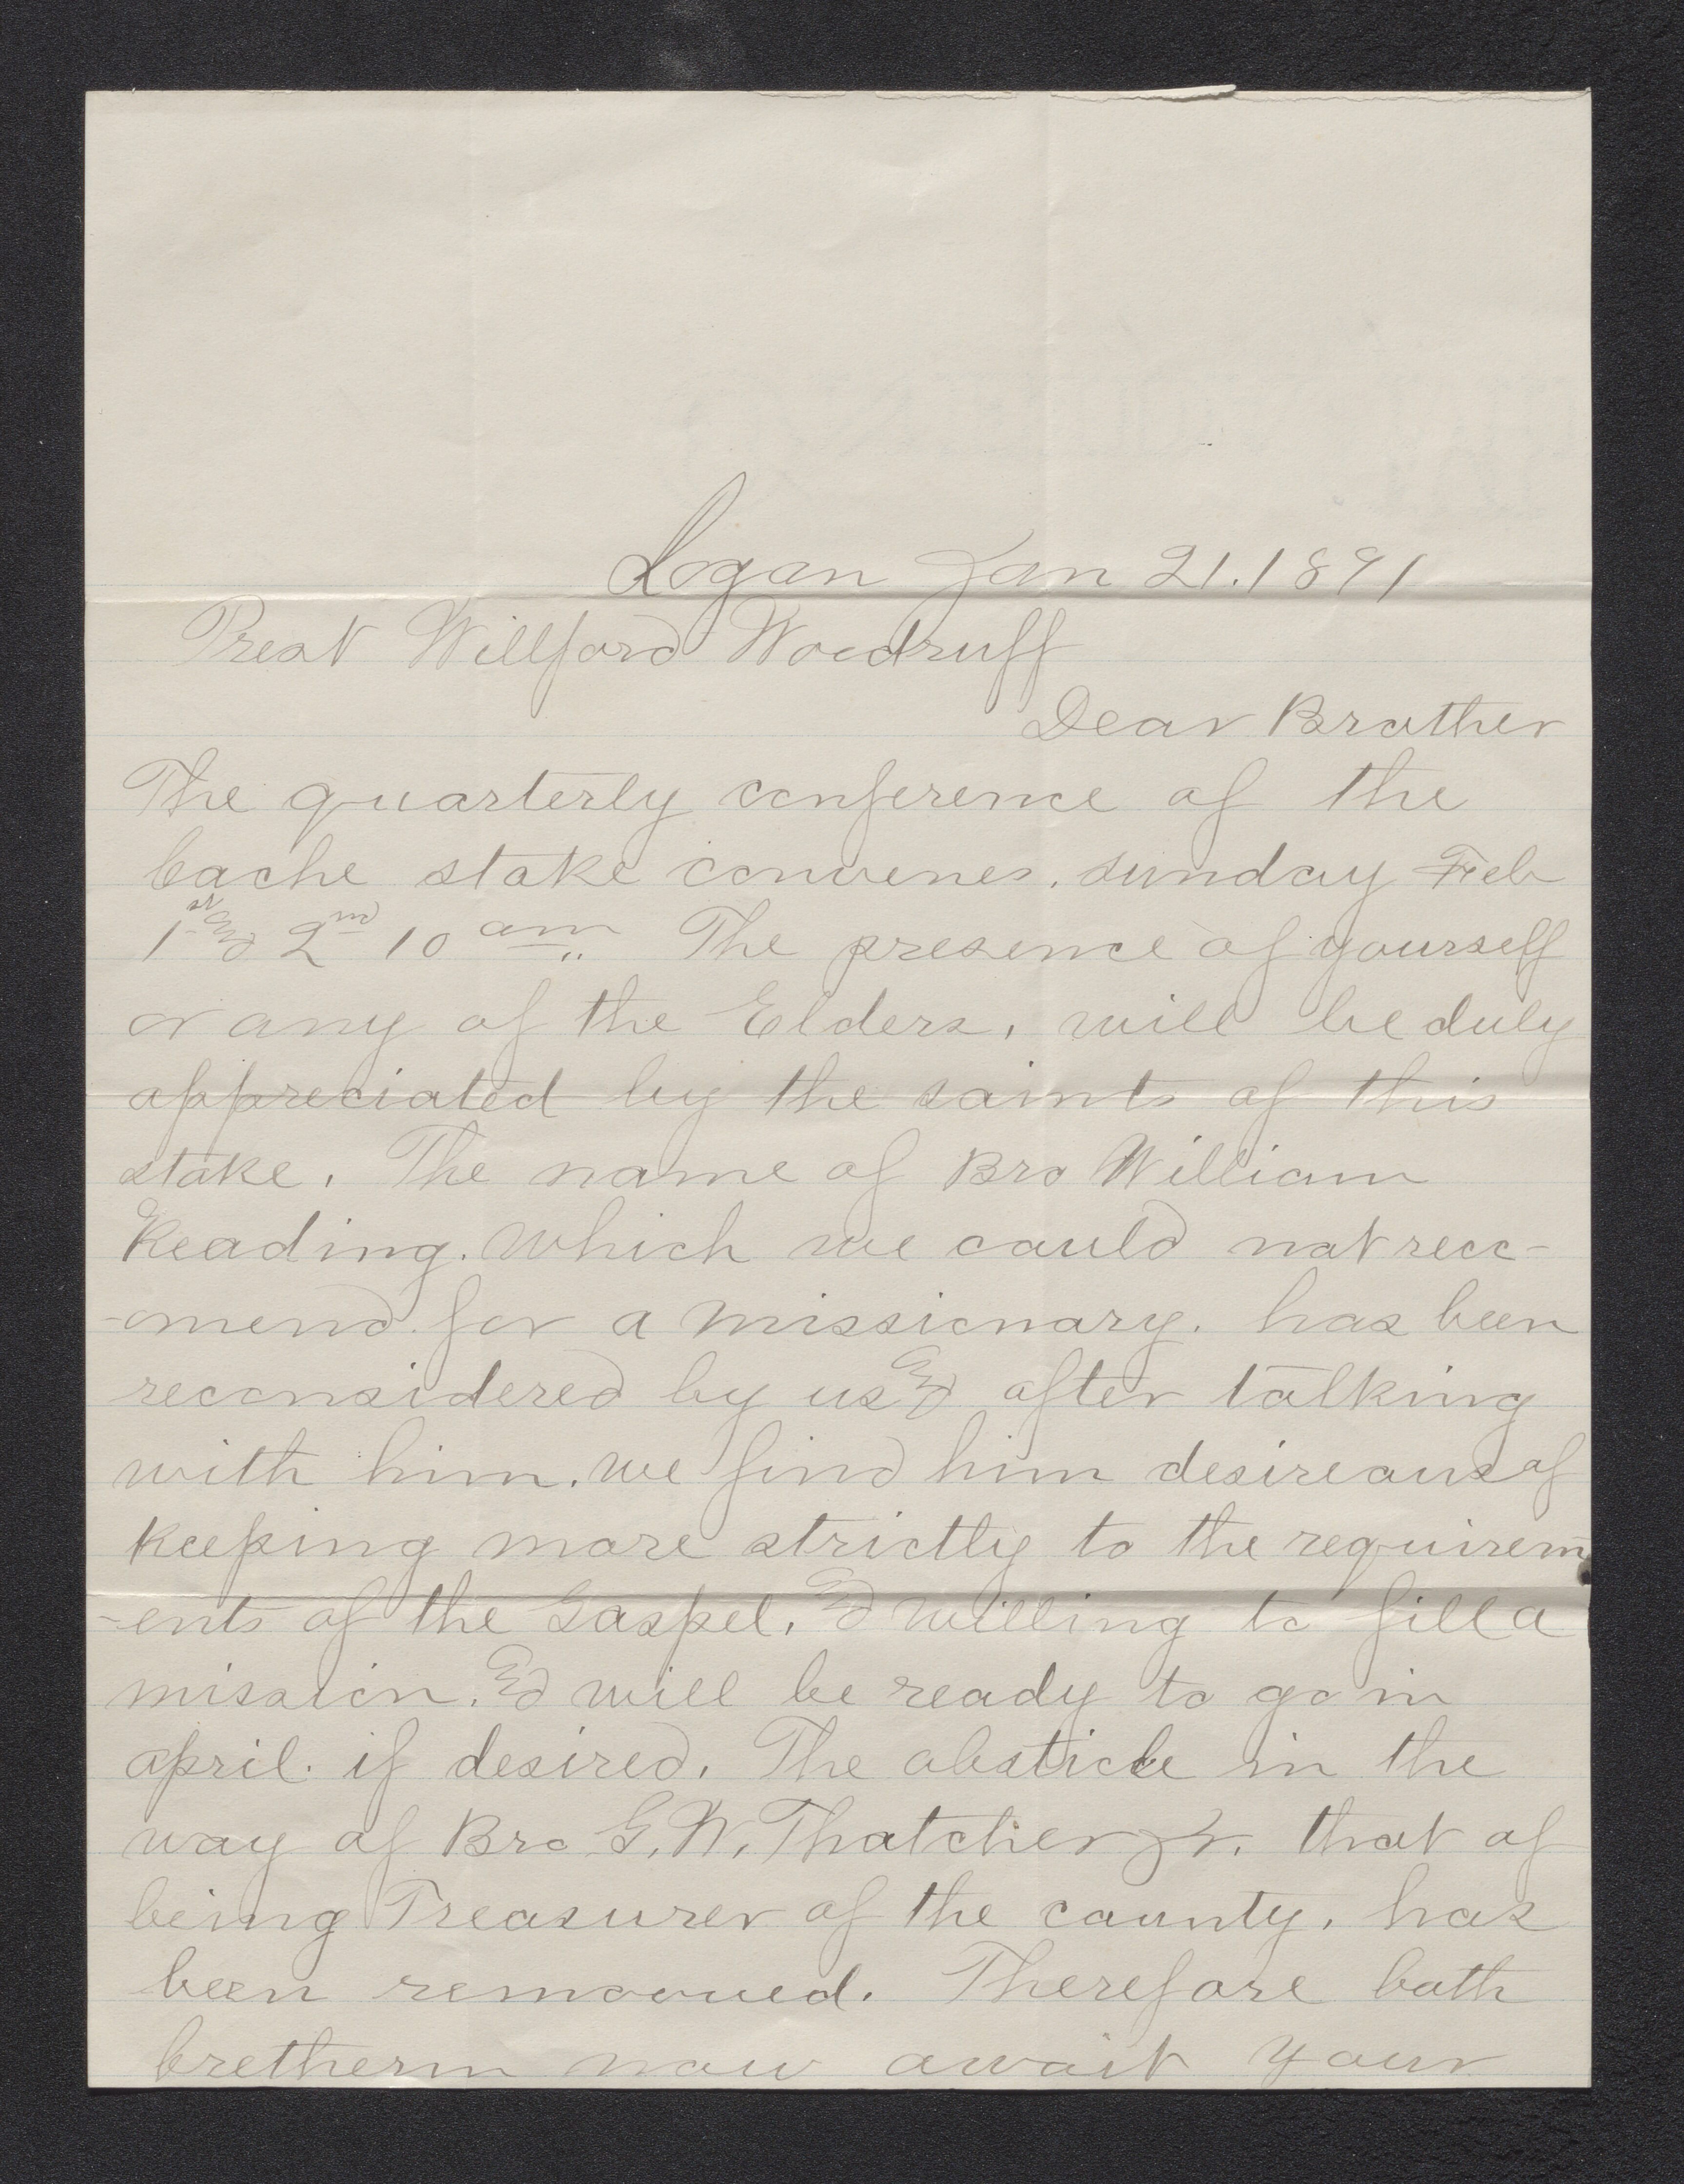 Logan Jan 21. 1891
Prest Willford Woodruff
Dear Brother
The quarterly conference of the
Cache stake convenes. sunday Feb
1st and 2nd 10 am.. The presence of yourself
or any of the Elders, will be duly
appreciated by the saints of this
stake. The name of Bro William
Reading. which we could not recc-
-omend for a missionary. has been
reconsidered by us and after talking
with him. we find him desireous of
keeping more strictly to the requirem
-ents of the Gospel, and willing to fill a
mission. and will be ready to go in
april. if desired. The obsticle in the
way of Bro G. W. Thatcher Jr. that of
being Treasurer of the county. has
been remooved. Therefore both
bretherin now await your